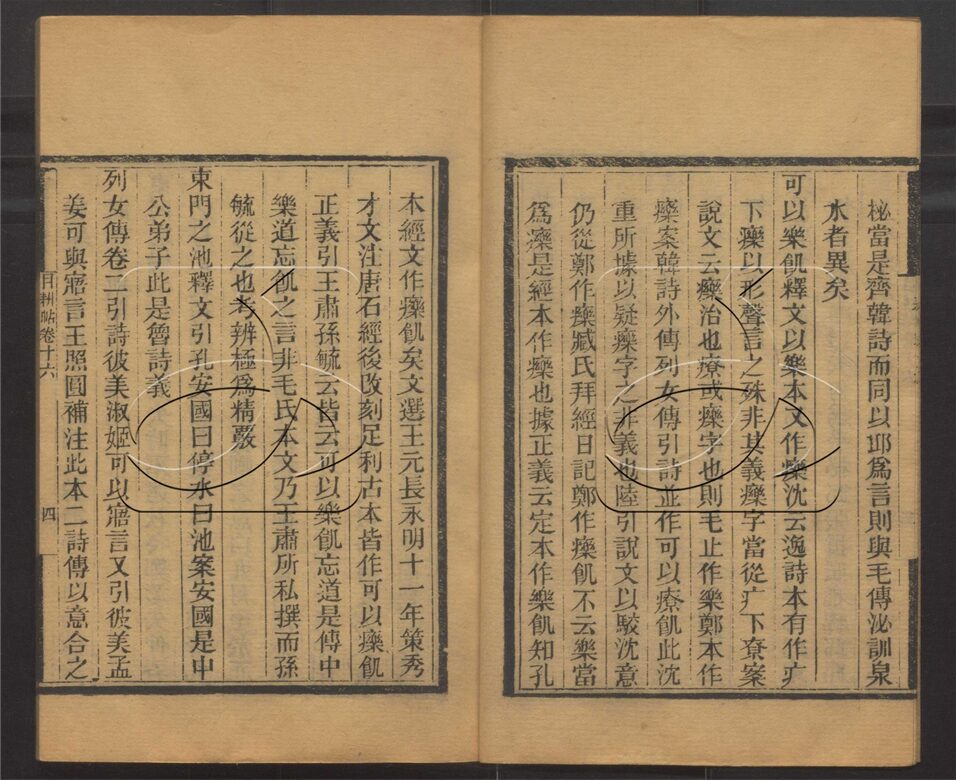 柲當是齊韓詩而同以邶爲言則與毛傳泌訓泉
水者異矣
可以樂飢釋文以樂本又作𤻲沈云逸詩本有作疒
下𤻲以形聲言之殊非其義𤻲字當從疒下尞案
說文云𤻲治也療或𤻲字也則毛止作樂鄭本作
𤻲案韓詩外傳列女傳引詩並作可以療飢此沈
重所據以疑𤻲字之非義也陸引說文以駮沈意
仍從鄭作𤻲臧氏拜經日記鄭作𤻲飢不云樂當
爲𤻲是經本作𤻲也據正義云定本作樂飢知孔
本經文作𤻲飢矣文選王元長永明十一年策秀
才文注唐石經後改刻足利古本皆作可以𤻲飢
正義引王肅孫毓云皆云可以樂飢忘道是傳中
樂道忘飢之言非毛氏本文乃王肅所私撰而孫
毓從之也考辨極爲精覈
東門之池釋文引孔安國曰停水曰池案安國是申
公弟子此是魯詩義
列女傳卷二引詩彼美淑姬可以寤言又引彼美孟
姜可與寤言王照圓補注此本二詩傳以意合之
目耕帖卷十六
四